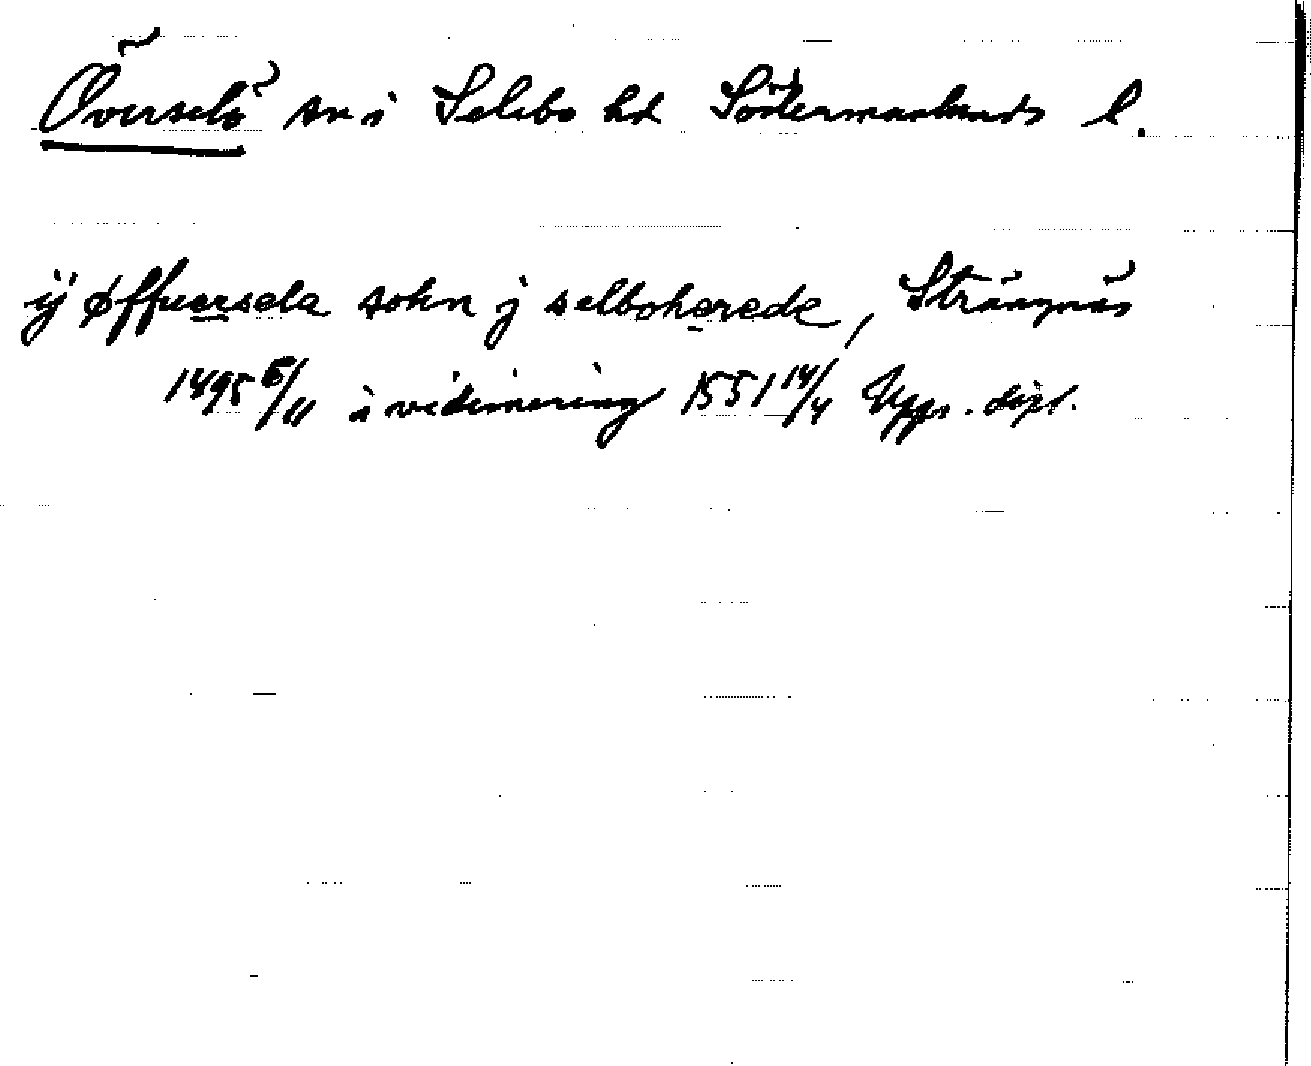 Överselö sn i Selebo hd Södermanlands l.
ij øffuersela sokn j selboherede, Strängnäs
1495 6/11 i vidimering 1551 14/4 Upps. dipl.